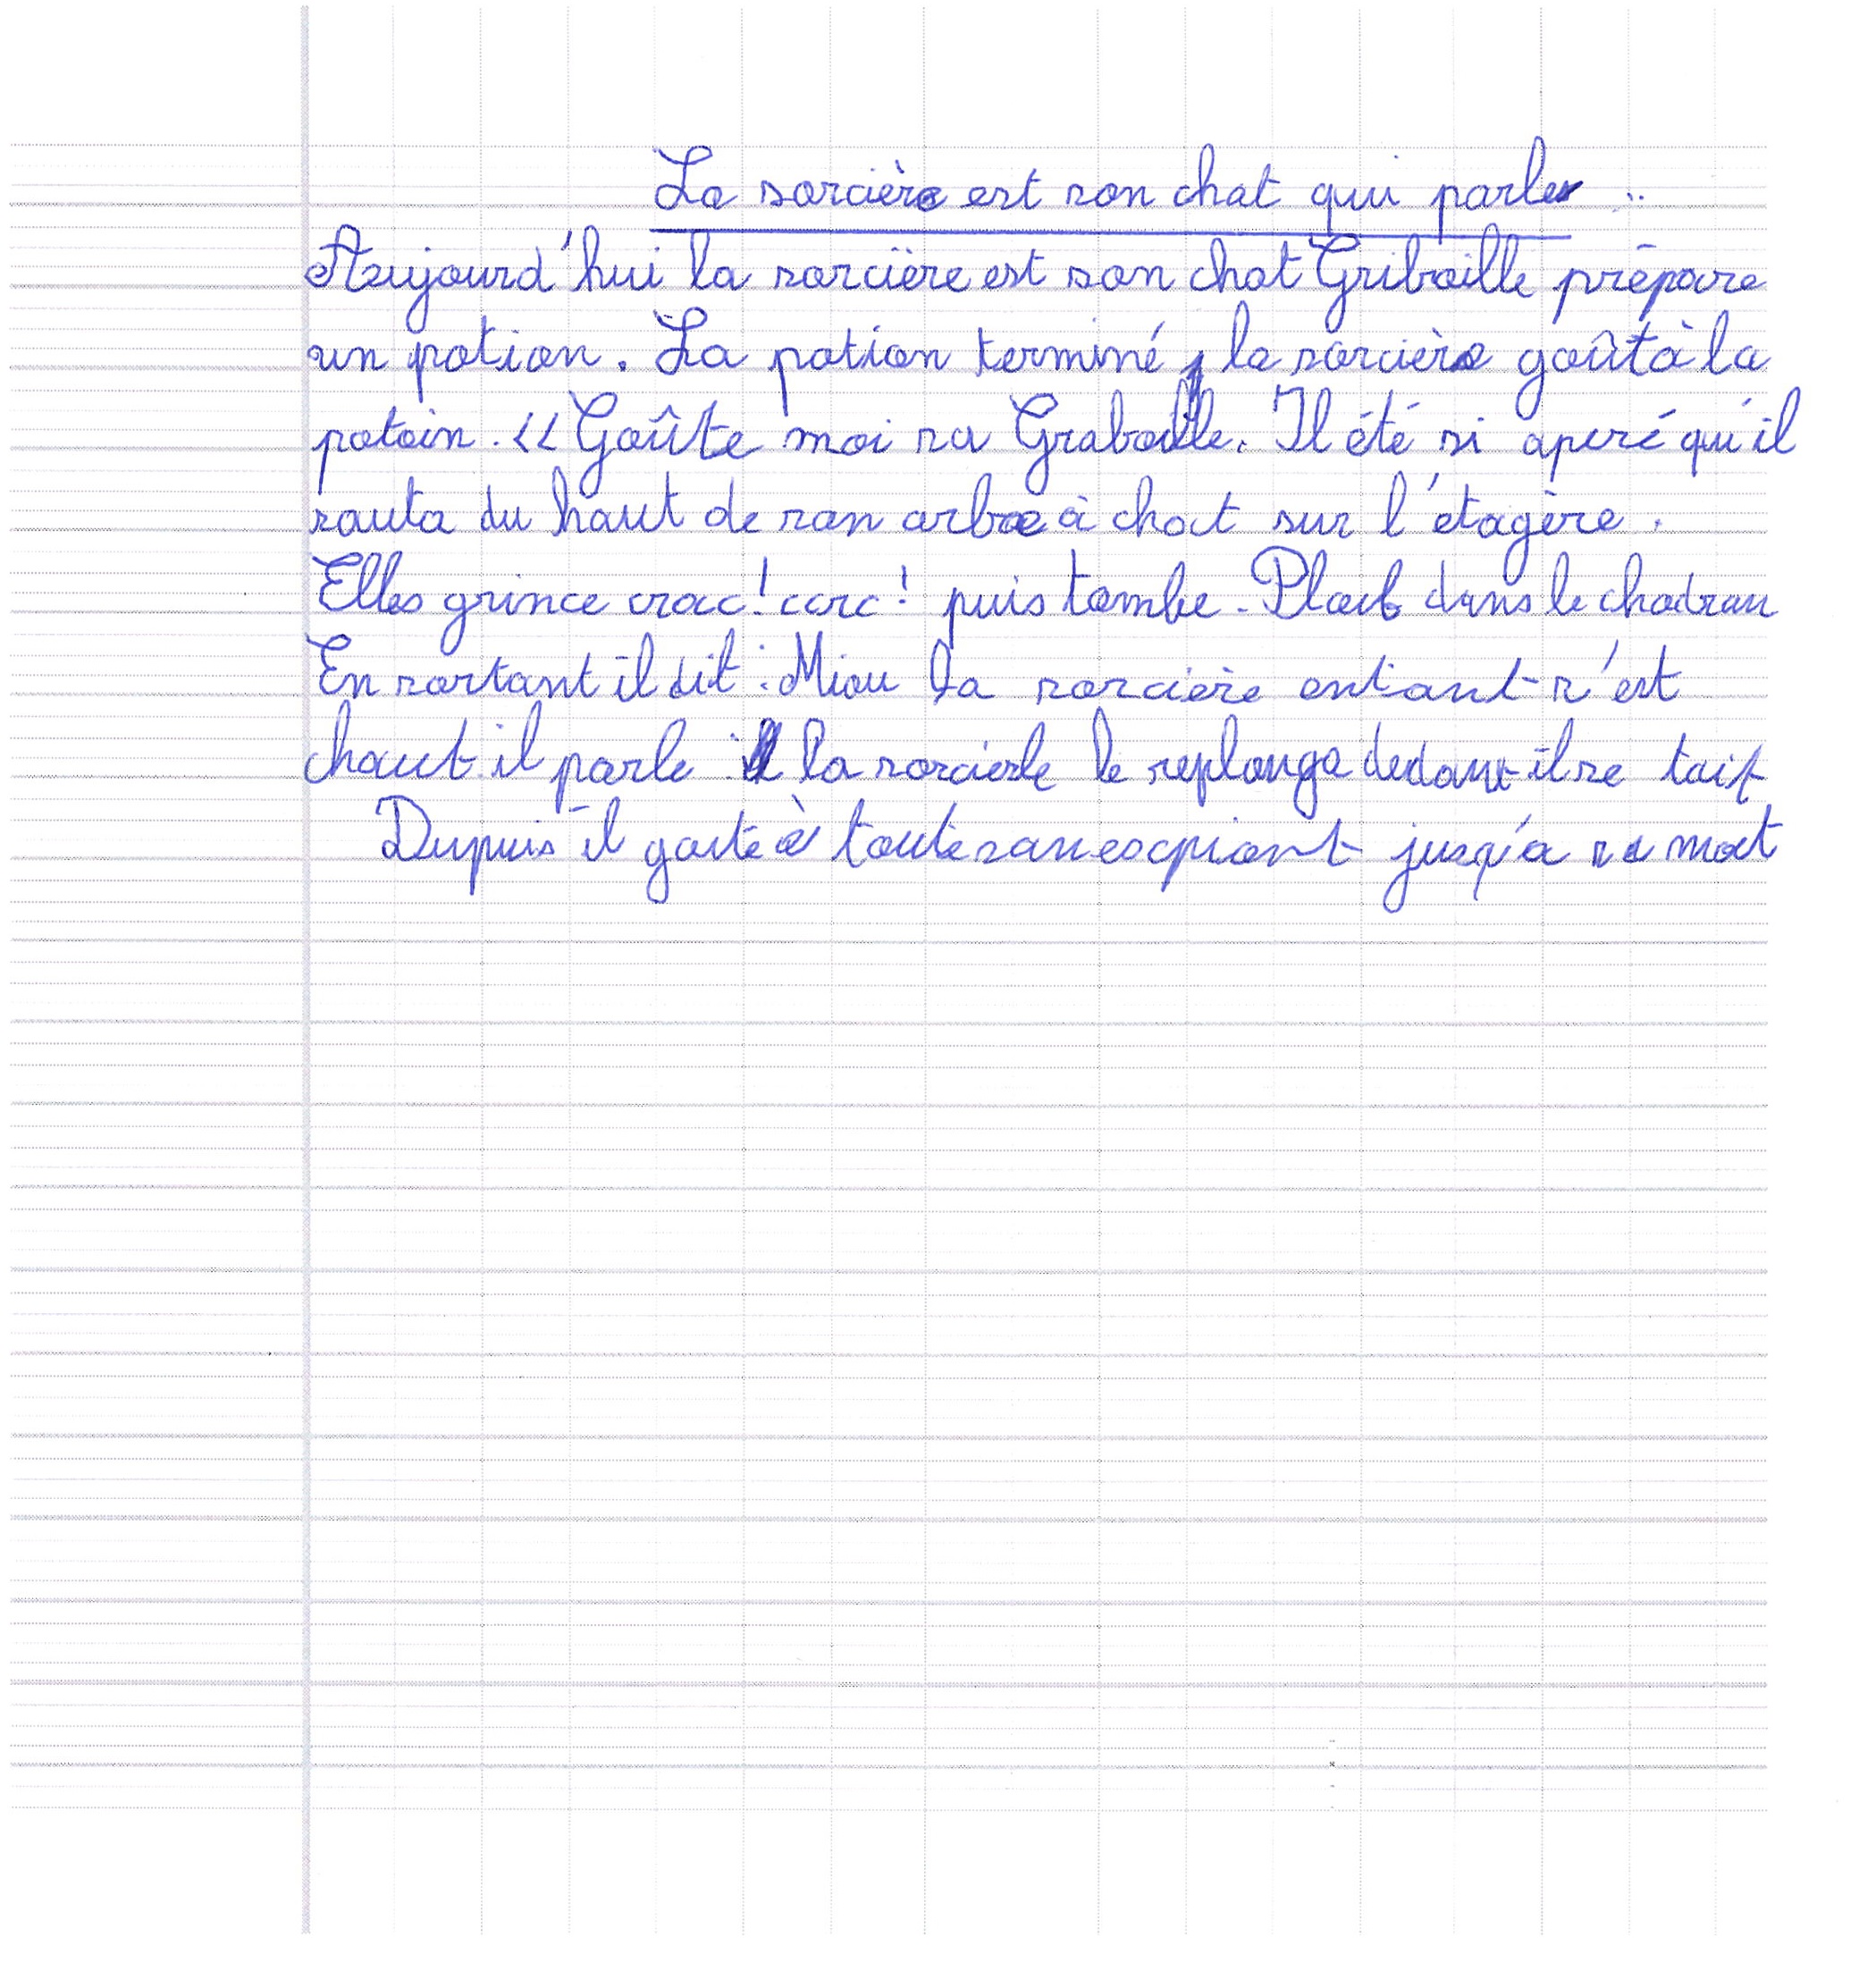 La sorcière est son chat qui parle ..
Aujourd'hui la sorcière est son chat Gribaille prépare
un potion. La potion terminé, la sorcière goûtà la
potoin. << Goûte moi sa Graboille. Il été si aperé qu'il
sauta du haut de son arbre à chat sur l'étagère.
Elles grince crac! carc! puis tombe. Plouf dans le chadrau
En sortant il dit : Miou la sorcière entant s'est
chaut il parle la sorcierle le replonga dedant il se tait
Dupuis il goute à toute san escpiant jusq'a sa mort